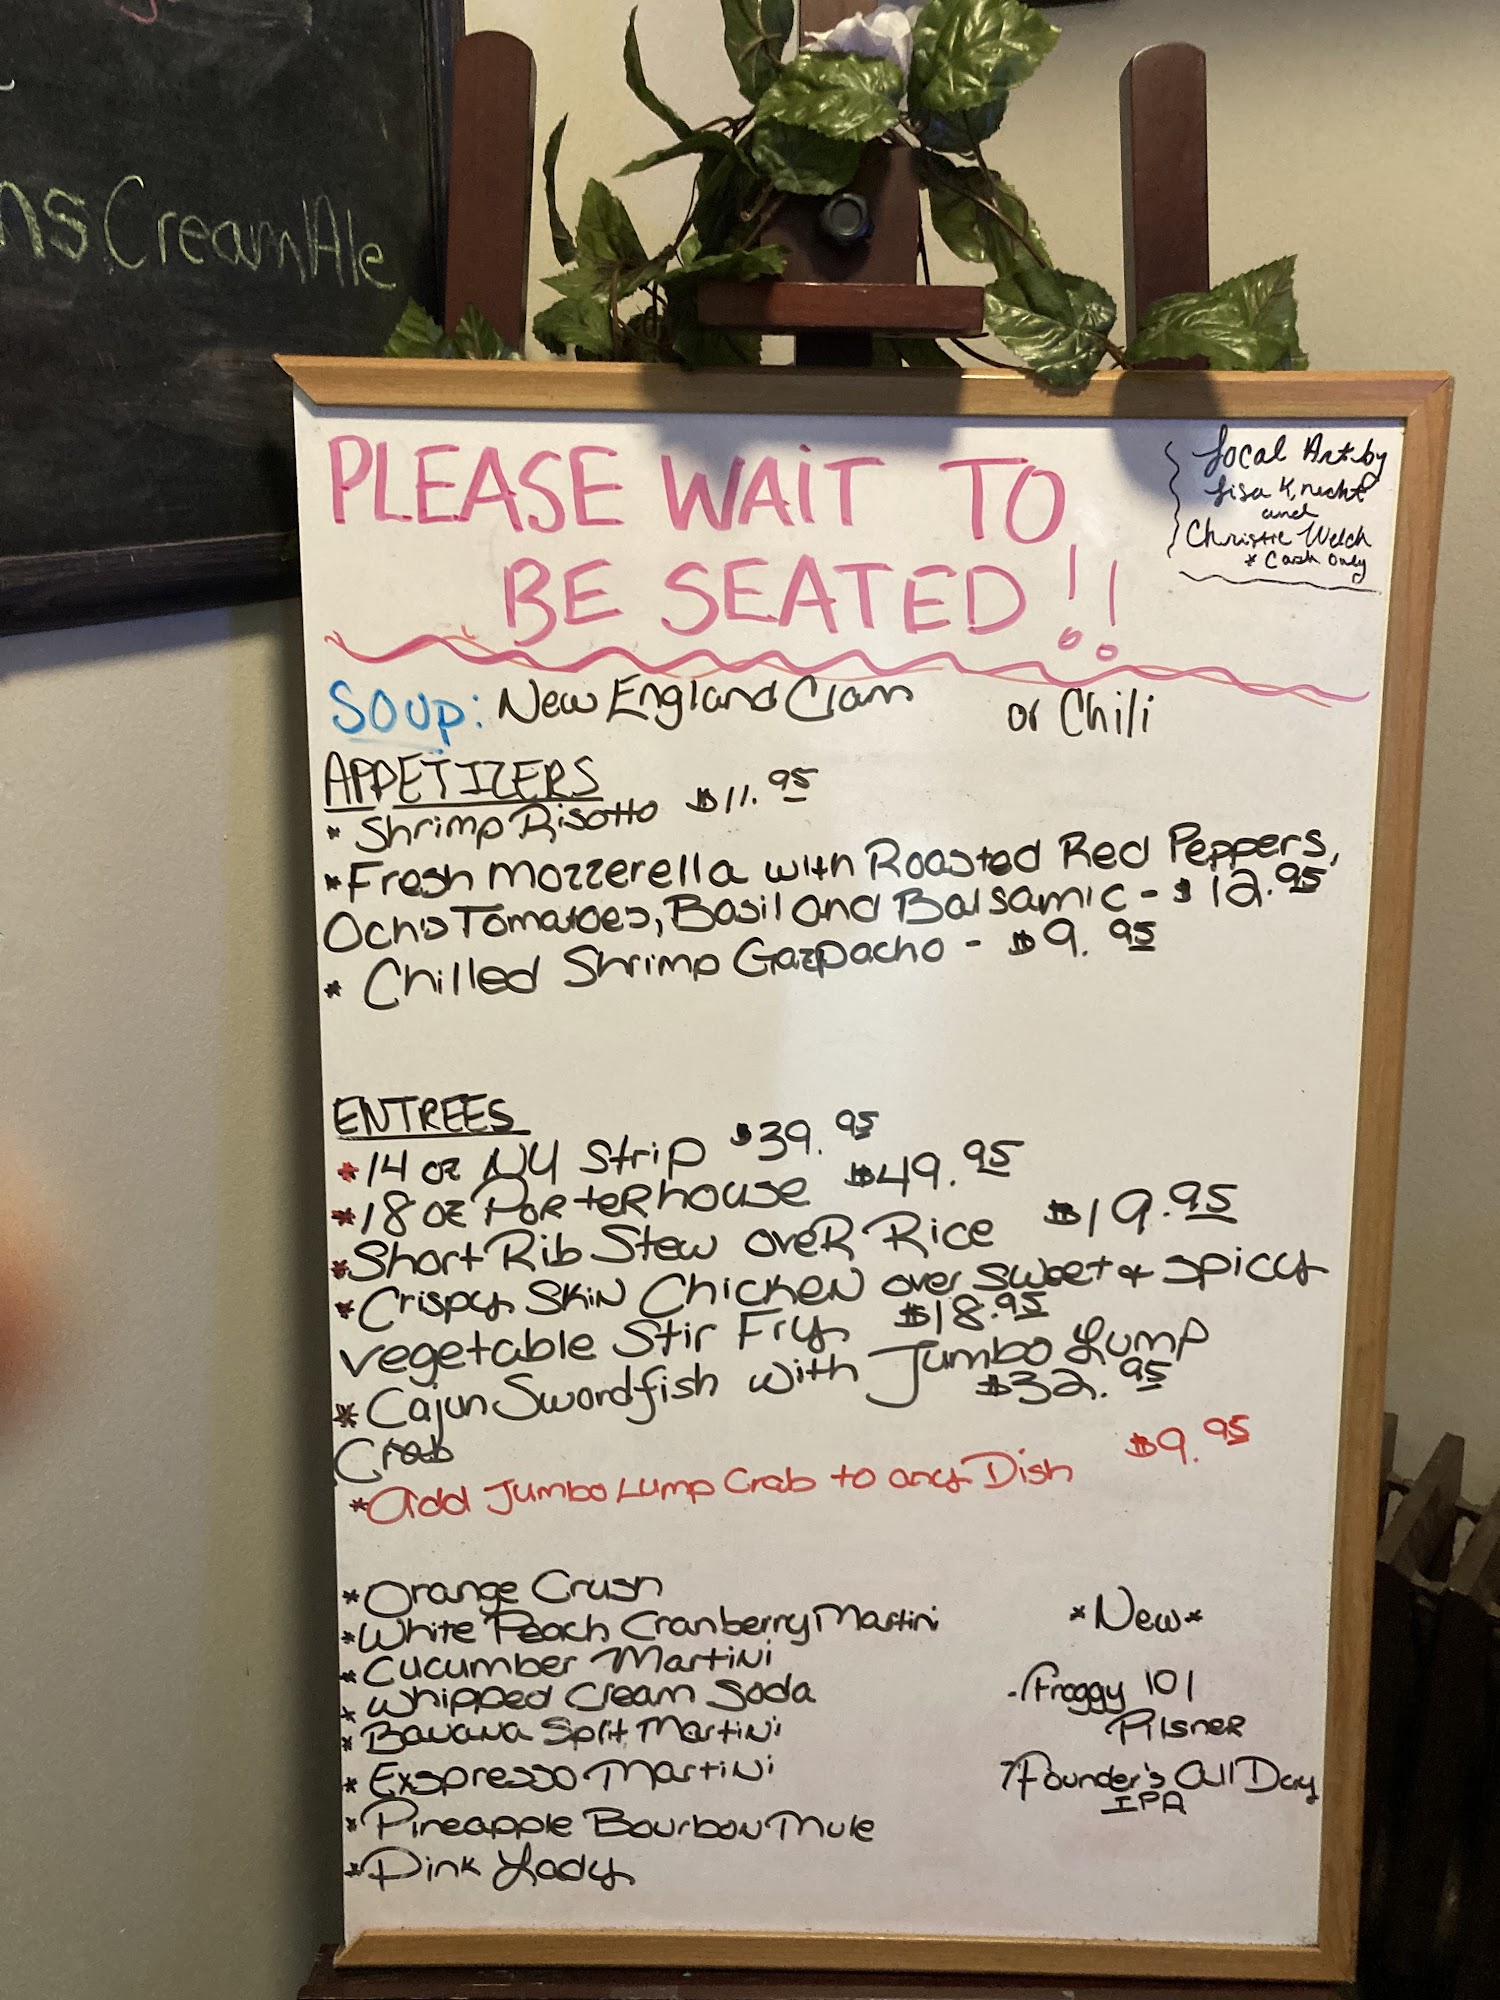 ns Cream Ale
PLEASE WAIT TO
BE SEATED!!
Local Art by
Lisa Knecht
and
Christie Welch
* Cash only
Soup: New England Clam or Chili
APPETIZERS
* Shrimp Risotto $11.95
* Fresh Mozzerella with Roasted Red Peppers,
Ochs Tomatoes, Basil and Balsamic - $12.95
* Chilled Shrimp Gazpacho - $9.95
ENTREES
* 14 oz NY Strip $39.95
* 18 oz Porterhouse $49.95
* Short Rib Stew over Rice $19.95
* Crispy Skin Chicken over sweet & spicy
vegetable Stir Fry $18.95
* Cajun Swordfish with Jumbo Lump
Crab $32.95
* Add Jumbo Lump Crab to any Dish $9.95
* Orange Crush
* White Peach Cranberry Martini
* Cucumber Martini
* Whipped Cream Soda
* Banana Split Martini
* Exspresso Martini
* Pineapple Bourbon Mule
* Pink Lady
* New *
- Froggy 101
Pilsner
- Founder's All Day
IPA